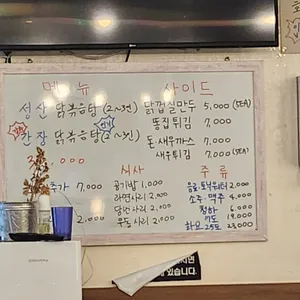 메뉴
성산 닭볶음탕 (2~3인)
간장 닭볶음탕 (2~3인)
,000
추가 7,000
2,000
식사
공기밥 1,000
라면사리 2,000
당면사리 2,000
우동사리 2,000
사이드
닭껍질만두 5,000 (5EA)
똥집튀김 7,000
돈새우까스 7,000
새우튀김 7,000 (5EA)
주류
소주·맥주 4,000
청하 6,000
화요 25도
있습니다.